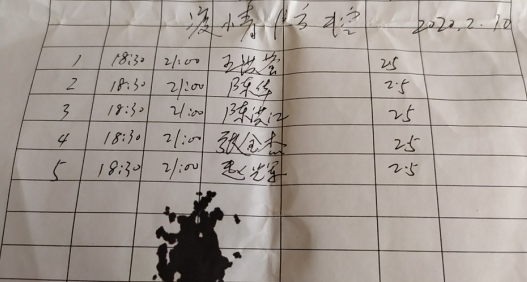 疫情防控 2020.2.10
1 18:30 21:00 王洪岩 2.5
2 18:30 21:00 陈华 2.5
3 18:30 21:00 陈洪江 2.5
4 18:30 21:00 张全杰 2.5
5 18:30 21:00 赵光军 2.5